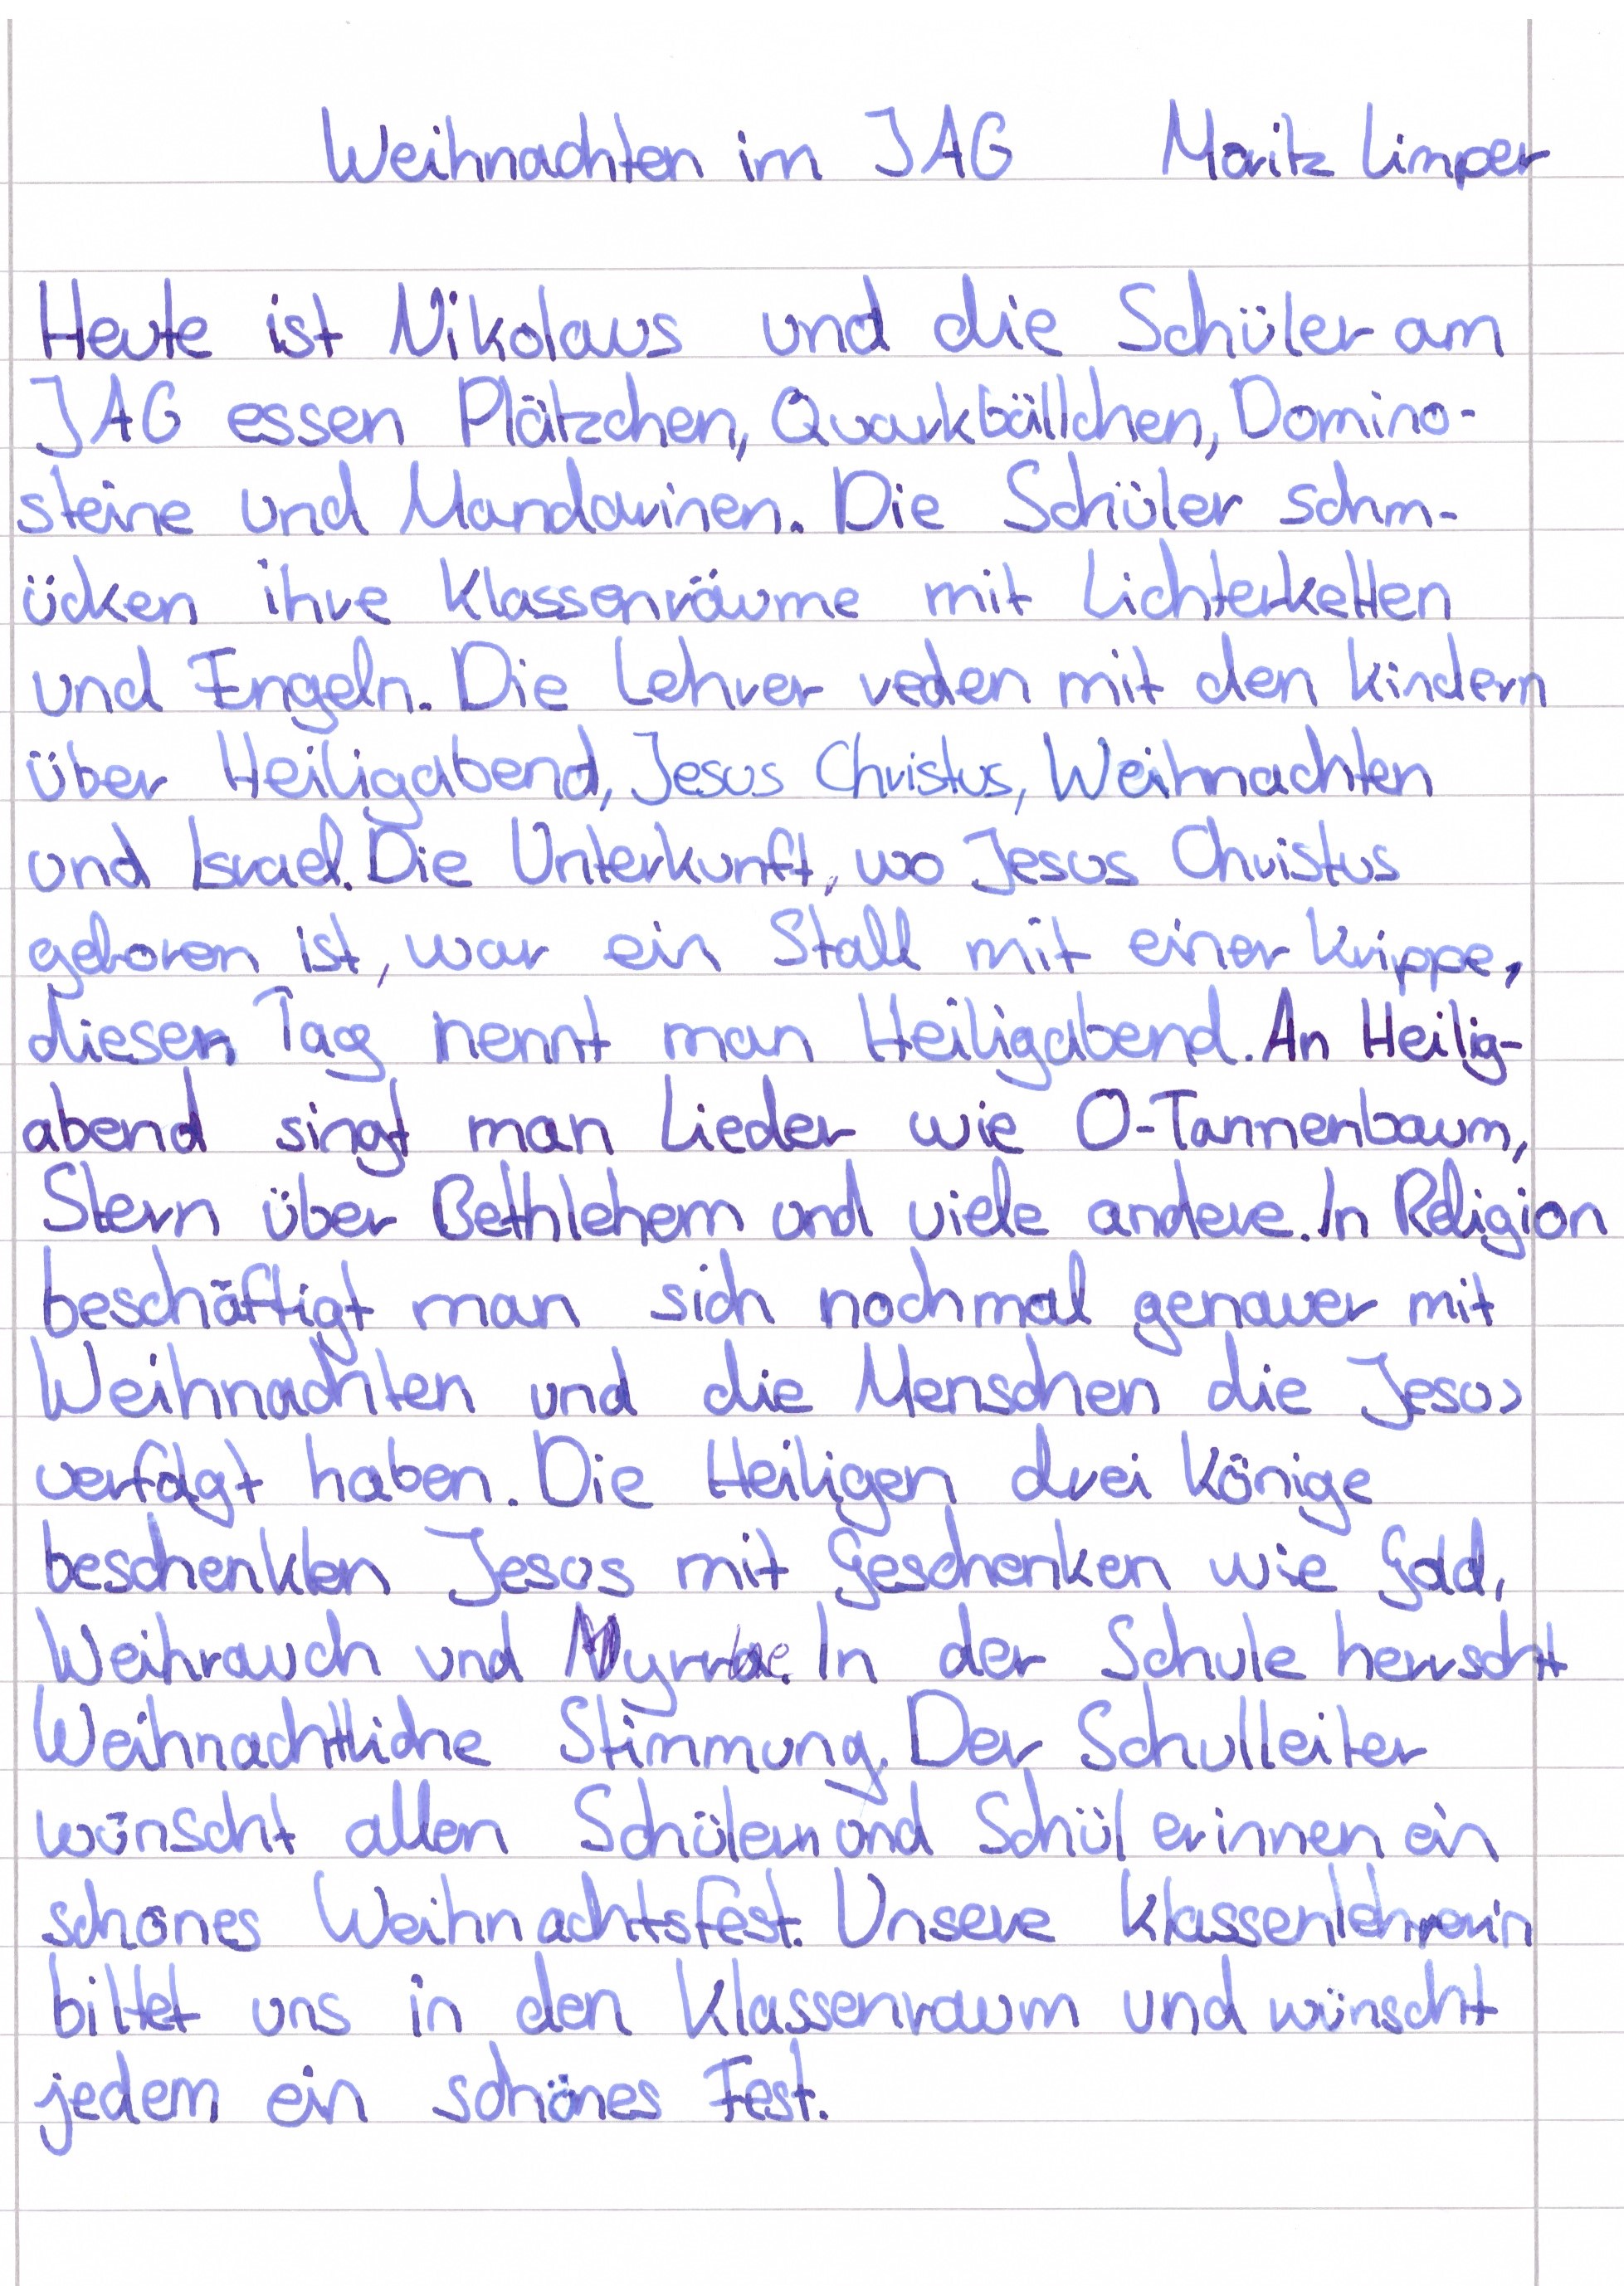 Weihnachten im JAG Moritz Limper
Heute ist Nikolaus und die Schüler am
JAG essen Plätzchen, Quarkbällchen, Domino-
steine und Mandarinen. Die Schüler schm-
ücken ihre Klassenräume mit Lichterketten
und Engeln. Die Lehrer reden mit den Kindern
über Heiligabend, Jesus Christus, Weihnachten
und Israel. Die Unterkunft, wo Jesus Christus
geboren ist, war ein Stall mit einer Krippe,
diesen Tag nennt man Heiligabend. An Heilig-
abend singt man Lieder wie O-Tannenbaum,
Stern über Bethlehem und viele andere. In Religion
beschäftigt man sich nochmal genauer mit
Weihnachten und die Menschen die Jesus
verfolgt haben. Die Heiligen drei Könige
beschenkten Jesus mit Geschenken wie Gold,
Weihrauch und Myrrhe. In der Schule herrscht
Weihnachtliche Stimmung. Der Schulleiter
wünscht allen Schülern und Schülerinnen ein
schönes Weihnachtsfest. Unsere Klassenlehrerin
bittet uns in den Klassenraum und wünscht
jedem ein schönes Fest.